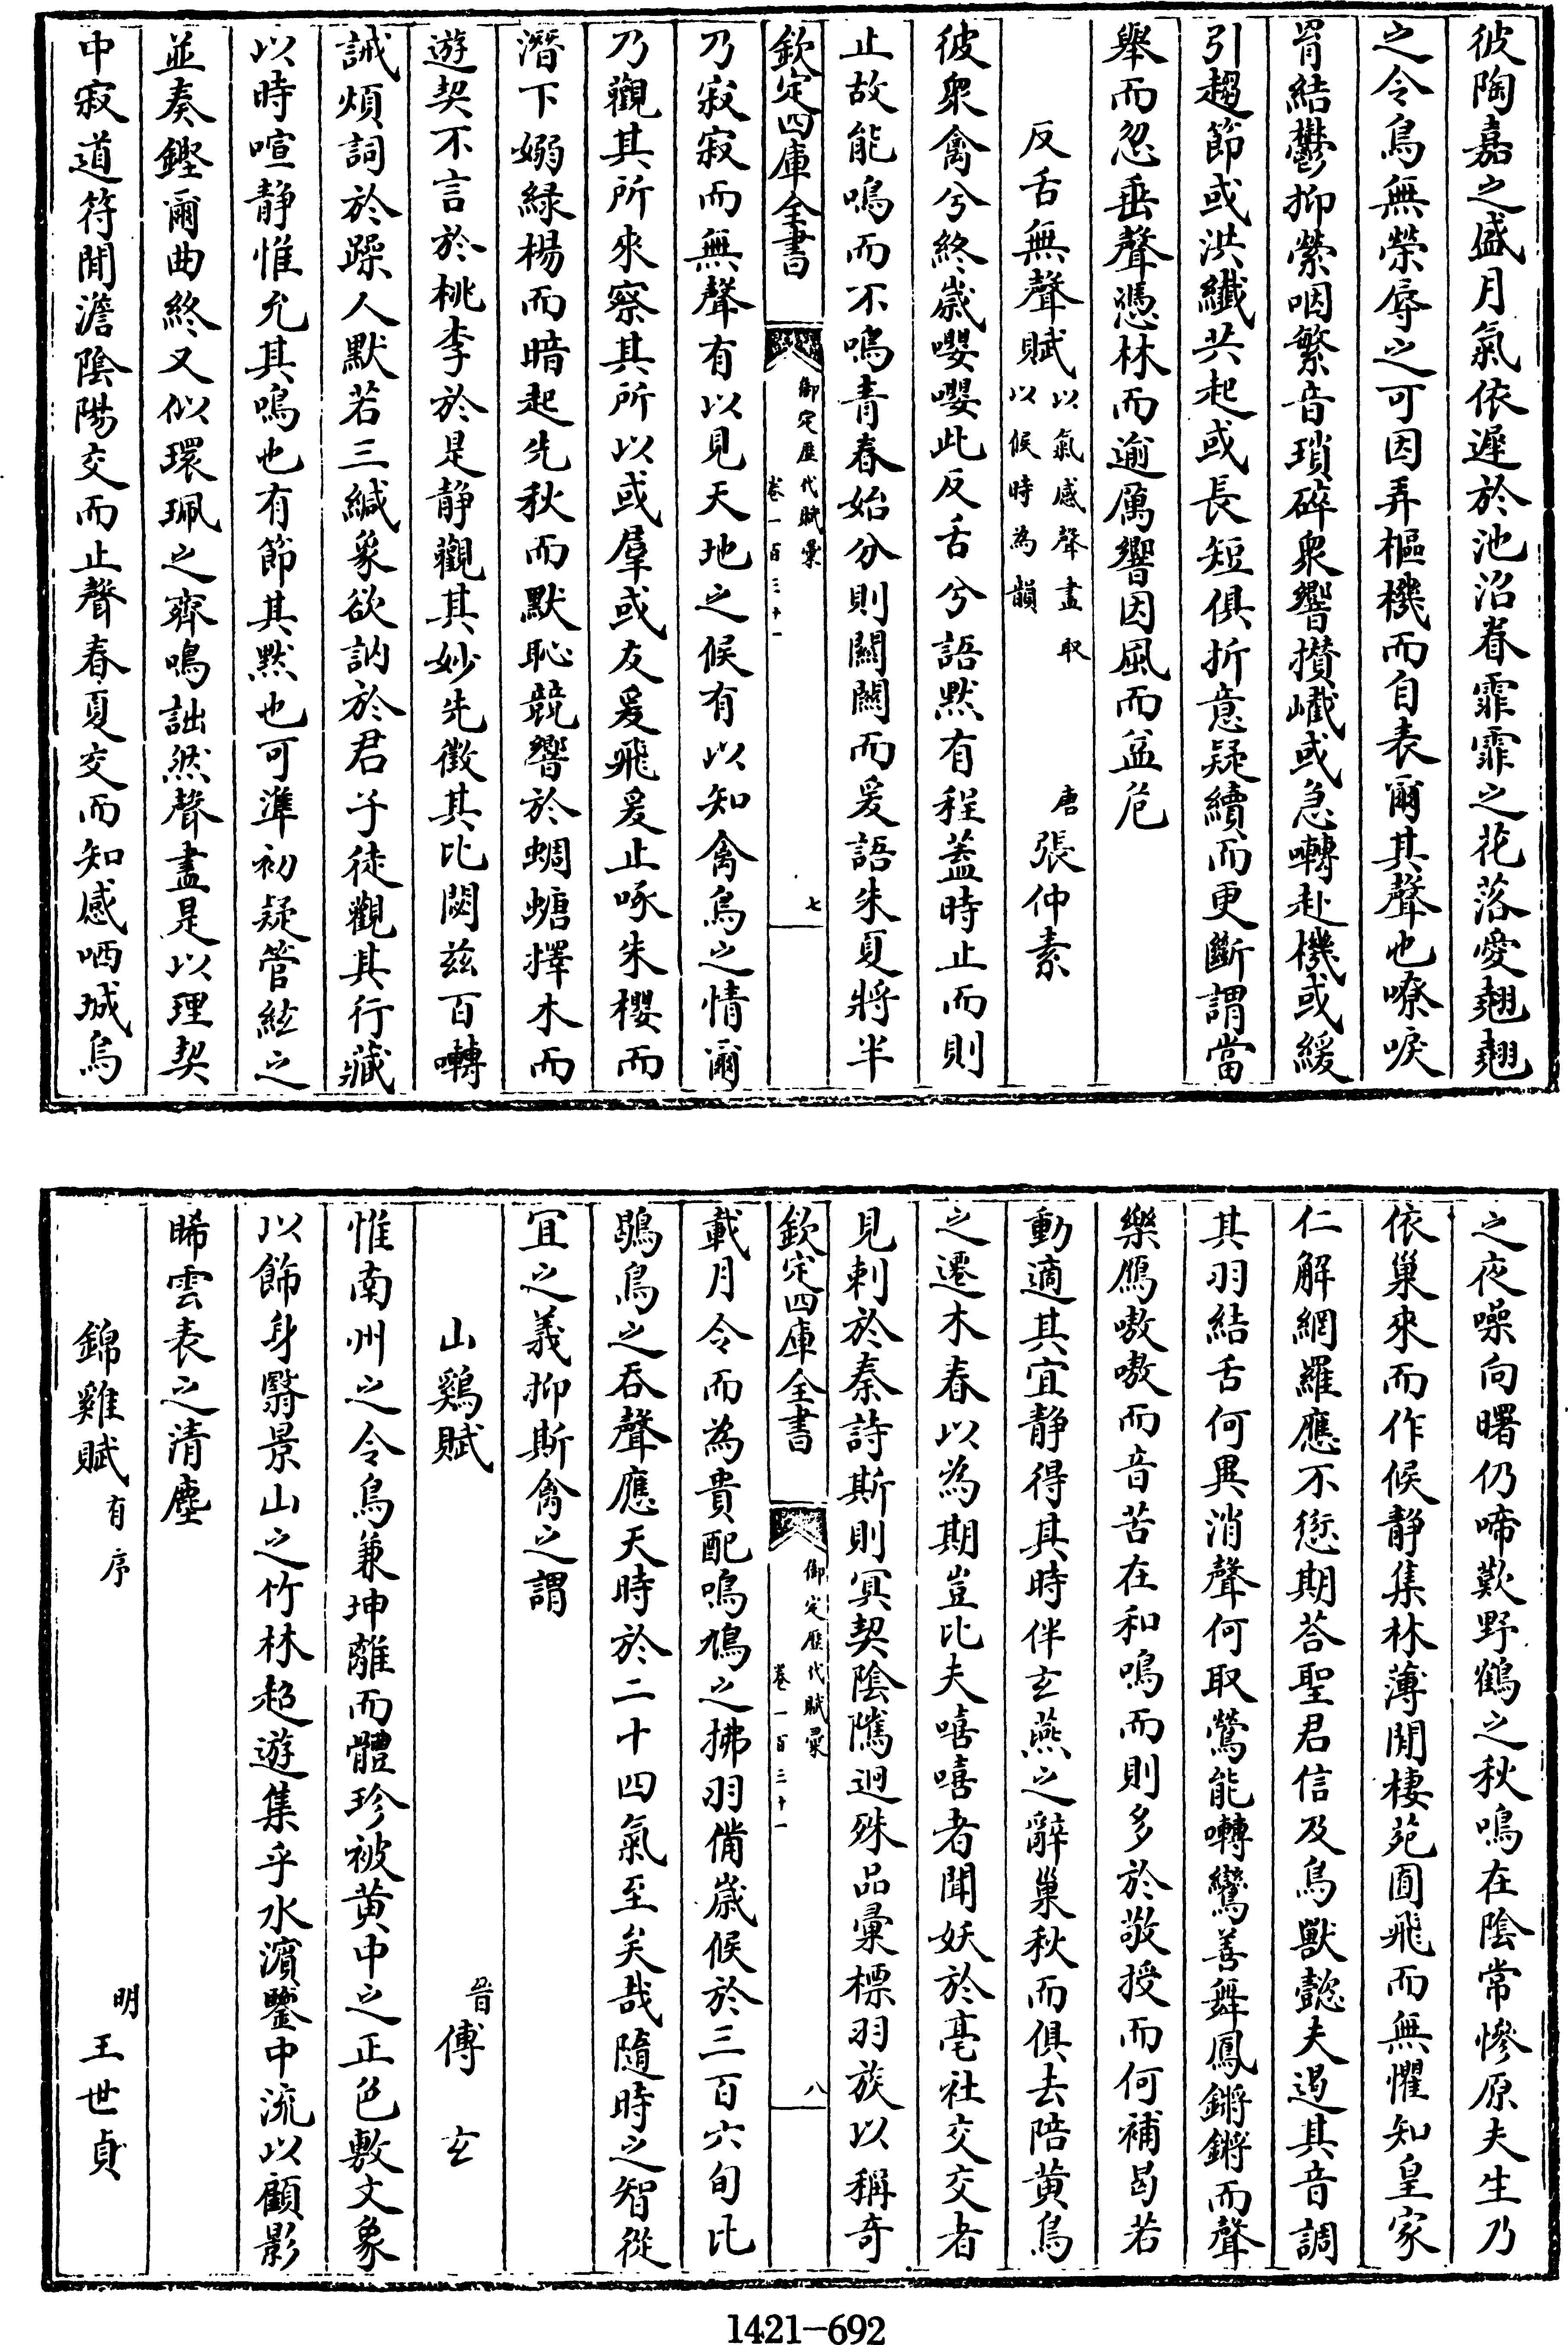 彼陶嘉之盛月氣依遲於池沼眷霏霏之花落愛翹翹
之令鳥無榮辱之可因弄樞機而自表爾其聲也嘹唳
胥結鬱抑縈咽繁音瑣碎衆響攅巇或急囀赴機或緩
引趨節或洪纖共起或長短俱折意疑續而更斷謂當
舉而忽垂聲憑林而逾厲響因風而益危
反舌無聲賦以氣感聲盡取以候時為韻 唐張仲素
彼衆禽兮終歲嚶嚶此反舌兮語默有程蓋時止而則
止故能鳴而不鳴青春始分則關關而爰語朱夏將半
欽定四庫全書 御定歷代賦彙卷一百三十一 七
乃寂寂而無聲有以見天地之候有以知禽鳥之情爾
乃觀其所來察其所以或羣或友爰飛爰止啄朱櫻而
潛下嫋緑楊而暗起先秋而默恥競響於蜩螗擇木而
遊契不言於桃李於是静觀其妙先徵其比閟兹百囀
誡煩詞於躁人默若三緘象欲訥於君子徒觀其行藏
以時喧静惟允其鳴也有節其黙也可準初疑管絃之
並奏鏗爾曲終又似環珮之齊鳴詘然聲盡是以理契
中寂道符閒澹陰陽交而止聲春夏交而知感哂城烏
之夜噪向曙仍啼歎野鶴之秋鳴在陰常慘原夫生乃
依巢來而作候静集林薄閒棲苑囿飛而無懼知皇家
仁解網羅應不愆期荅聖君信及鳥獸懿夫遏其音調
其羽結舌何異消聲何取鶯能囀鸞善舞鳳鏘鏘而聲
樂鴈嗷嗷而音苦在和鳴而則多於敬授而何補曷若
動適其宜静得其時伴玄燕之辭巢秋而俱去陪黄鳥
之遷木春以為期豈比夫嘻嘻者聞妖於亳社交交者
見刺於秦詩斯則冥契陰隲迥殊品彚標羽族以稱奇
欽定四庫全書 御定歷代賦彙卷一百三十一 八
載月令而為貴配鳴鳩之拂羽備歲候於三百六旬比
鵙鳥之吞聲應天時於二十四氣至矣哉隨時之智從
宜之義抑斯禽之謂
山鷄賦 晉傅玄
惟南州之令鳥兼坤離而體珍被黄中之正色敷文象
以飾身翳景山之竹林超遊集乎水濱鑒中流以顧影
晞雲表之清塵
錦雞賦有序 明王世貞
1421-692